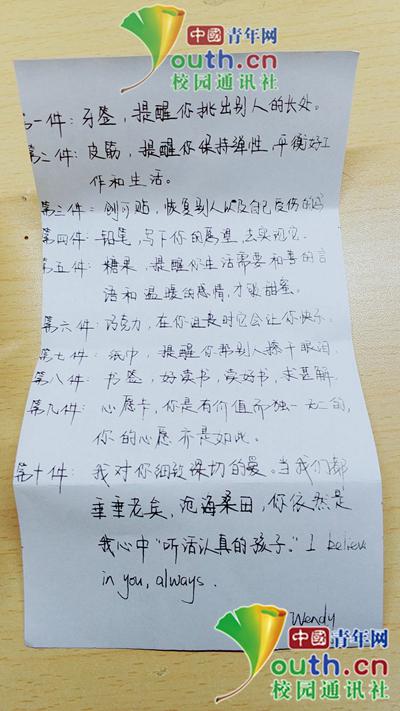 中國青年网
youth.cn
校园通讯社
第一件：牙签，提醒你挑出别人的长处。
第二件：皮筋，提醒你保持弹性，平衡好工
作和生活。
第三件：创可贴，恢复别人以及自己受伤的
第四件：铅笔，写下你的愿望，去实现它。
第五件：糖果，提醒你生活需要和善的言
语和温暖的感情，才够甜蜜。
第六件：巧克力，在你沮丧时它会让你快乐。
第七件：纸巾，提醒你帮别人擦干眼泪。
第八件：书签，好读书，读好书，求甚解。
第九件：心愿卡，你是有价值而独一无二的，
你的心愿亦是如此。
第十件：我对你细致深切的爱。当我们都
垂垂老矣，沧海桑田，你依然是
我心中“听话认真的孩子”。I believe
in you, always.
Wendy
中國青年网
youth.cn
校园通讯社